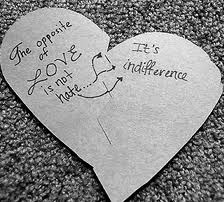 The opposite
of
LOVE
is not
hate...
It's
indifference